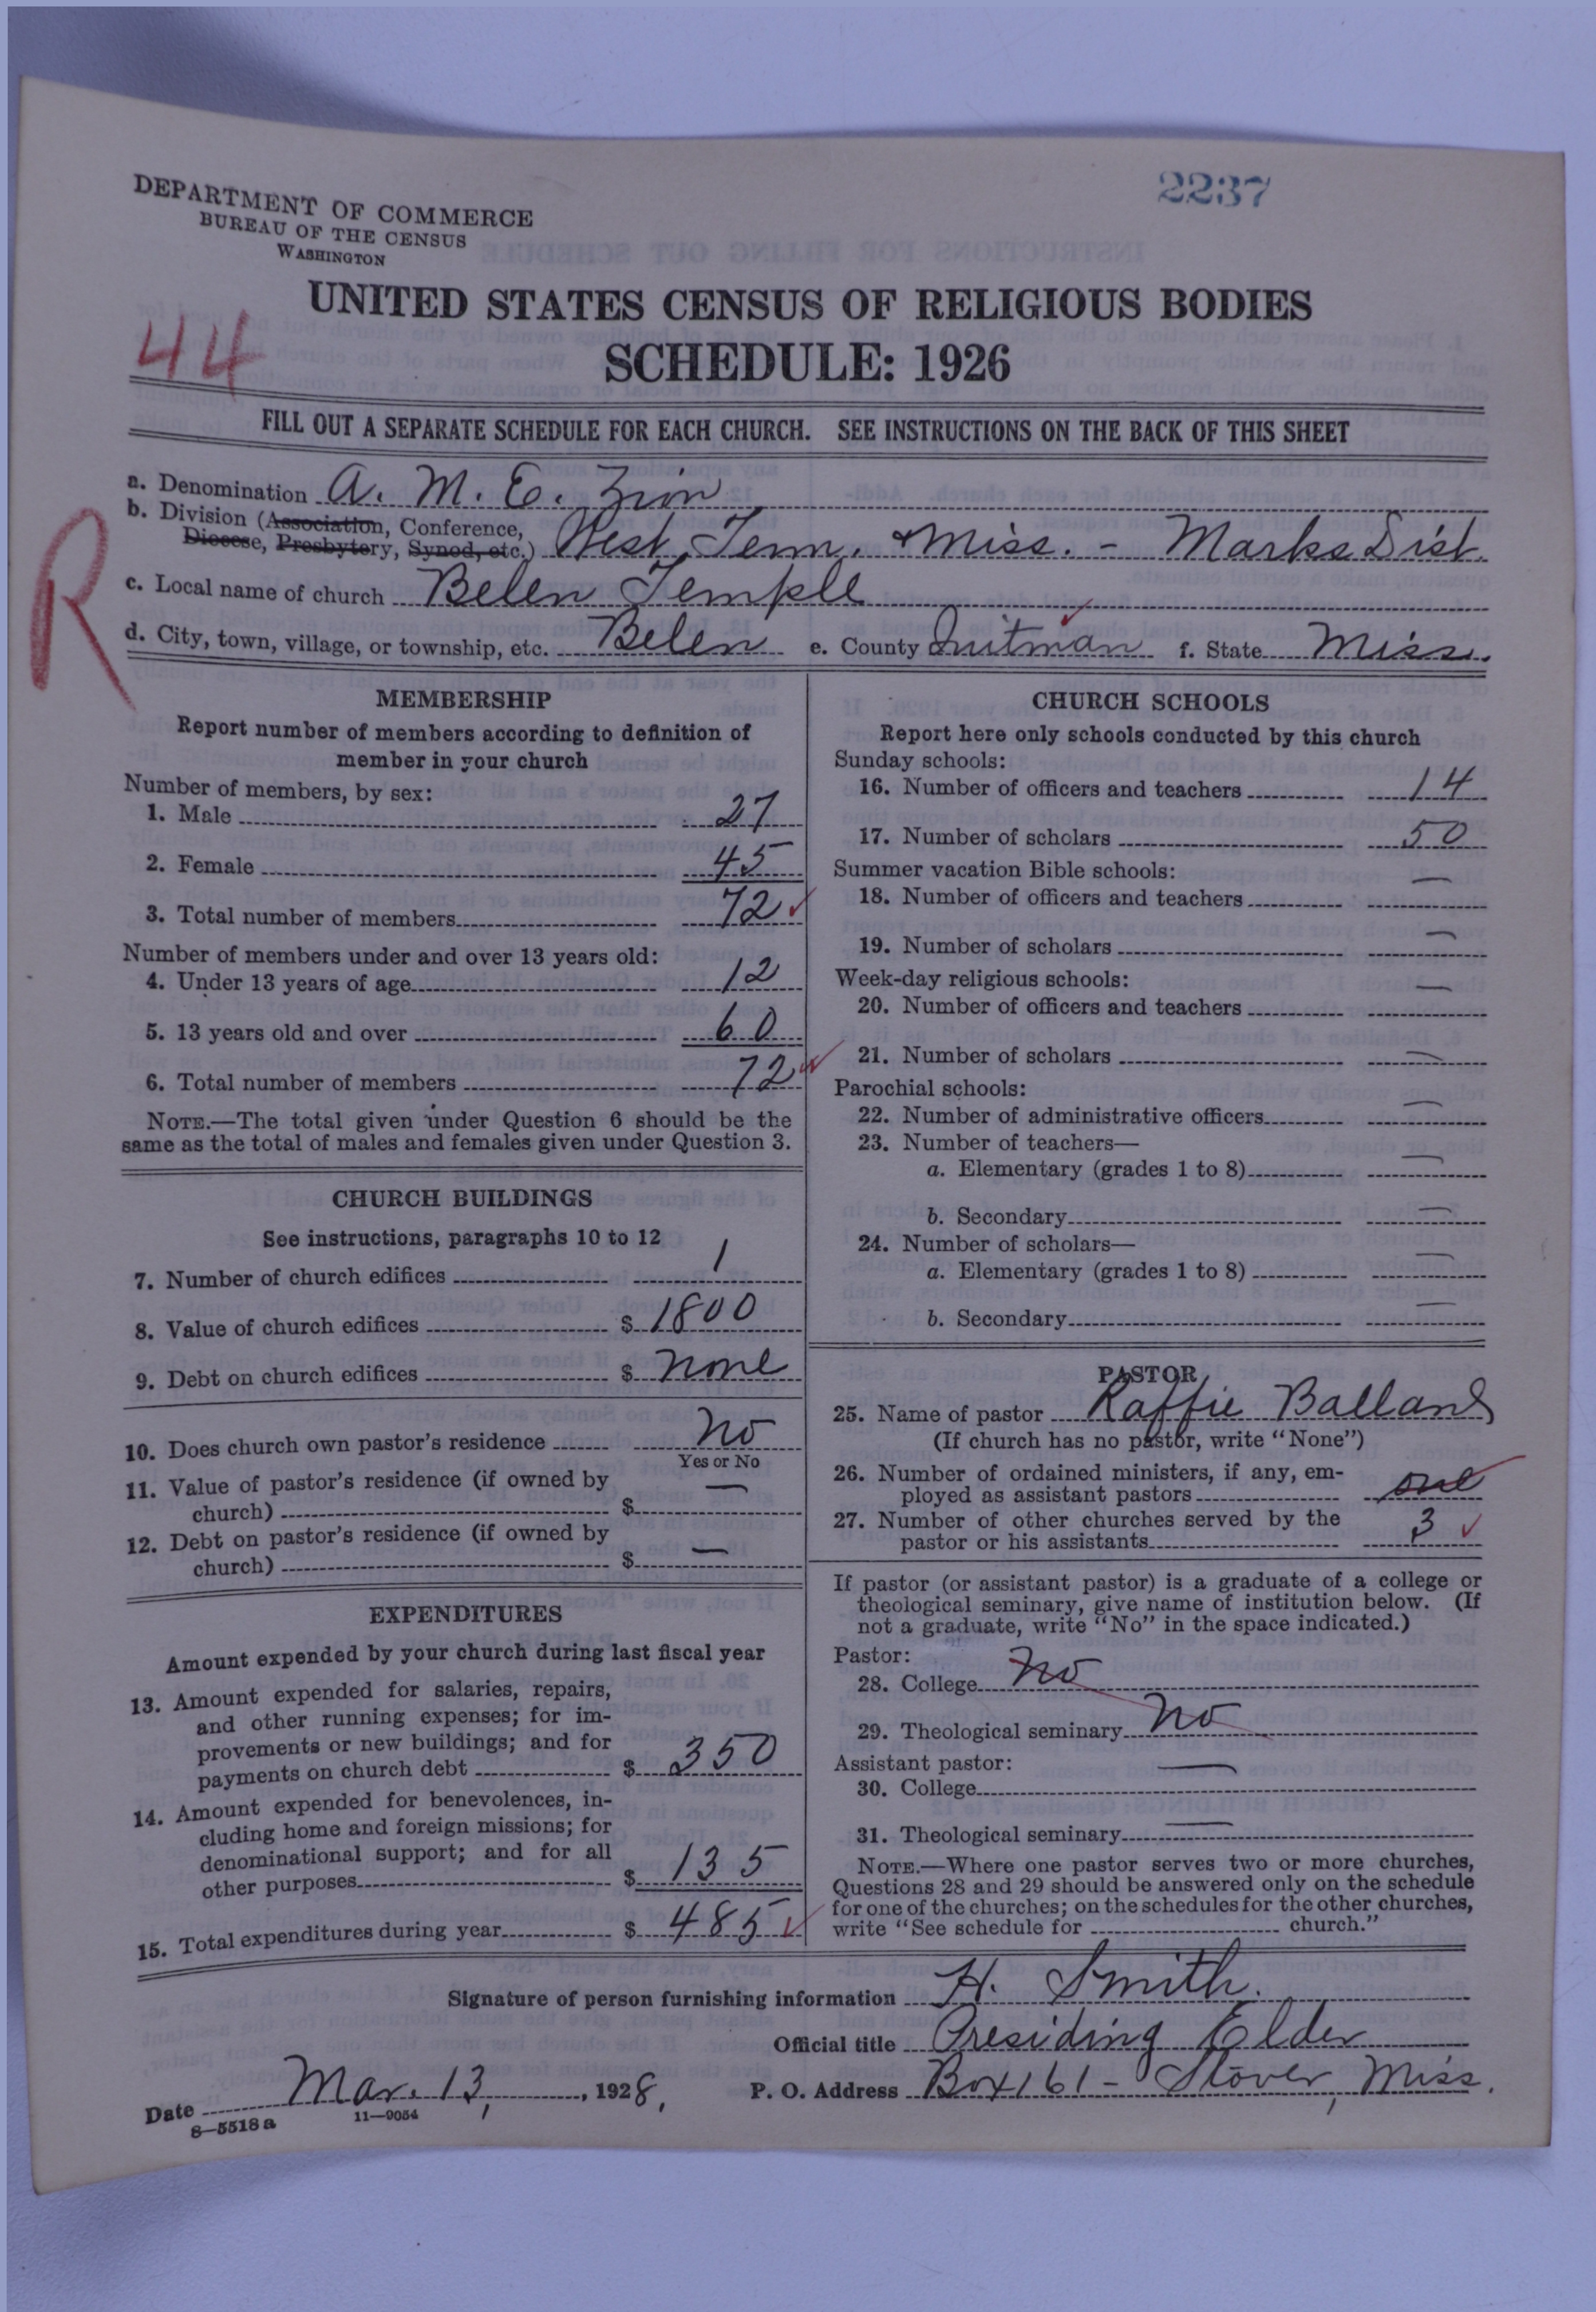 2237
DEPARTMENT OF COMMERCE
BUREAU OF THE CENSUS
WASHINGTON
UNITED STATES CENSUS OF RELIGIOUS BODIES
44
SCHEDULE: 1926
FILL OUT A SEPARATE SCHEDULE FOR EACH CHURCH. SEE INSTRUCTIONS ON THE BACK OF THIS SHEET
R
a. Denomination A. M. E. Zion
b. Division (Association, Conference,
Diocese, Presbytery, Synod, etc.) West Tenn. & Miss. - Marks Dist.
c. Local name of church Belen Temple
d. City, town, village, or township, etc. Belen e. County Quitman f. State Miss.
MEMBERSHIP
Report number of members according to definition of
member in your church
Number of members, by sex:
1. Male 27
2. Female 45
3. Total number of members 72
Number of members under and over 13 years old:
4. Under 13 years of age 12
5. 13 years old and over 60
6. Total number of members 72
NOTE.—The total given under Question 6 should be the
same as the total of males and females given under Question 3.
CHURCH BUILDINGS
See instructions, paragraphs 10 to 12
7. Number of church edifices 1
8. Value of church edifices $ 1800
9. Debt on church edifices $ none
10. Does church own pastor's residence No
Yes or No
11. Value of pastor's residence (if owned by
church) $ —
12. Debt on pastor's residence (if owned by
church) $ —
EXPENDITURES
Amount expended by your church during last fiscal year
13. Amount expended for salaries, repairs,
and other running expenses; for im-
provements or new buildings; and for
payments on church debt $ 350
14. Amount expended for benevolences, in-
cluding home and foreign missions; for
denominational support; and for all
other purposes $ 135
15. Total expenditures during year $ 485
CHURCH SCHOOLS
Report here only schools conducted by this church
Sunday schools:
16. Number of officers and teachers 14
17. Number of scholars 50
Summer vacation Bible schools:
18. Number of officers and teachers —
19. Number of scholars —
Week-day religious schools:
20. Number of officers and teachers —
21. Number of scholars —
Parochial schools:
22. Number of administrative officers —
23. Number of teachers—
a. Elementary (grades 1 to 8) —
b. Secondary —
24. Number of scholars—
a. Elementary (grades 1 to 8) —
b. Secondary —
PASTOR
25. Name of pastor Raffie Ballard
(If church has no pastor, write "None")
26. Number of ordained ministers, if any, em-
ployed as assistant pastors one
27. Number of other churches served by the
pastor or his assistants 3
If pastor (or assistant pastor) is a graduate of a college or
theological seminary, give name of institution below. (If
not a graduate, write "No" in the space indicated.)
Pastor:
28. College No
29. Theological seminary No
Assistant pastor:
30. College —
31. Theological seminary —
NOTE.—Where one pastor serves two or more churches,
Questions 28 and 29 should be answered only on the schedule
for one of the churches; on the schedules for the other churches,
write "See schedule for church."
Signature of person furnishing information H. Smith.
Official title Presiding Elder
Date Mar. 13, 1928, P. O. Address Box 161 - Stover, Miss.
8—5518 a 11—9054